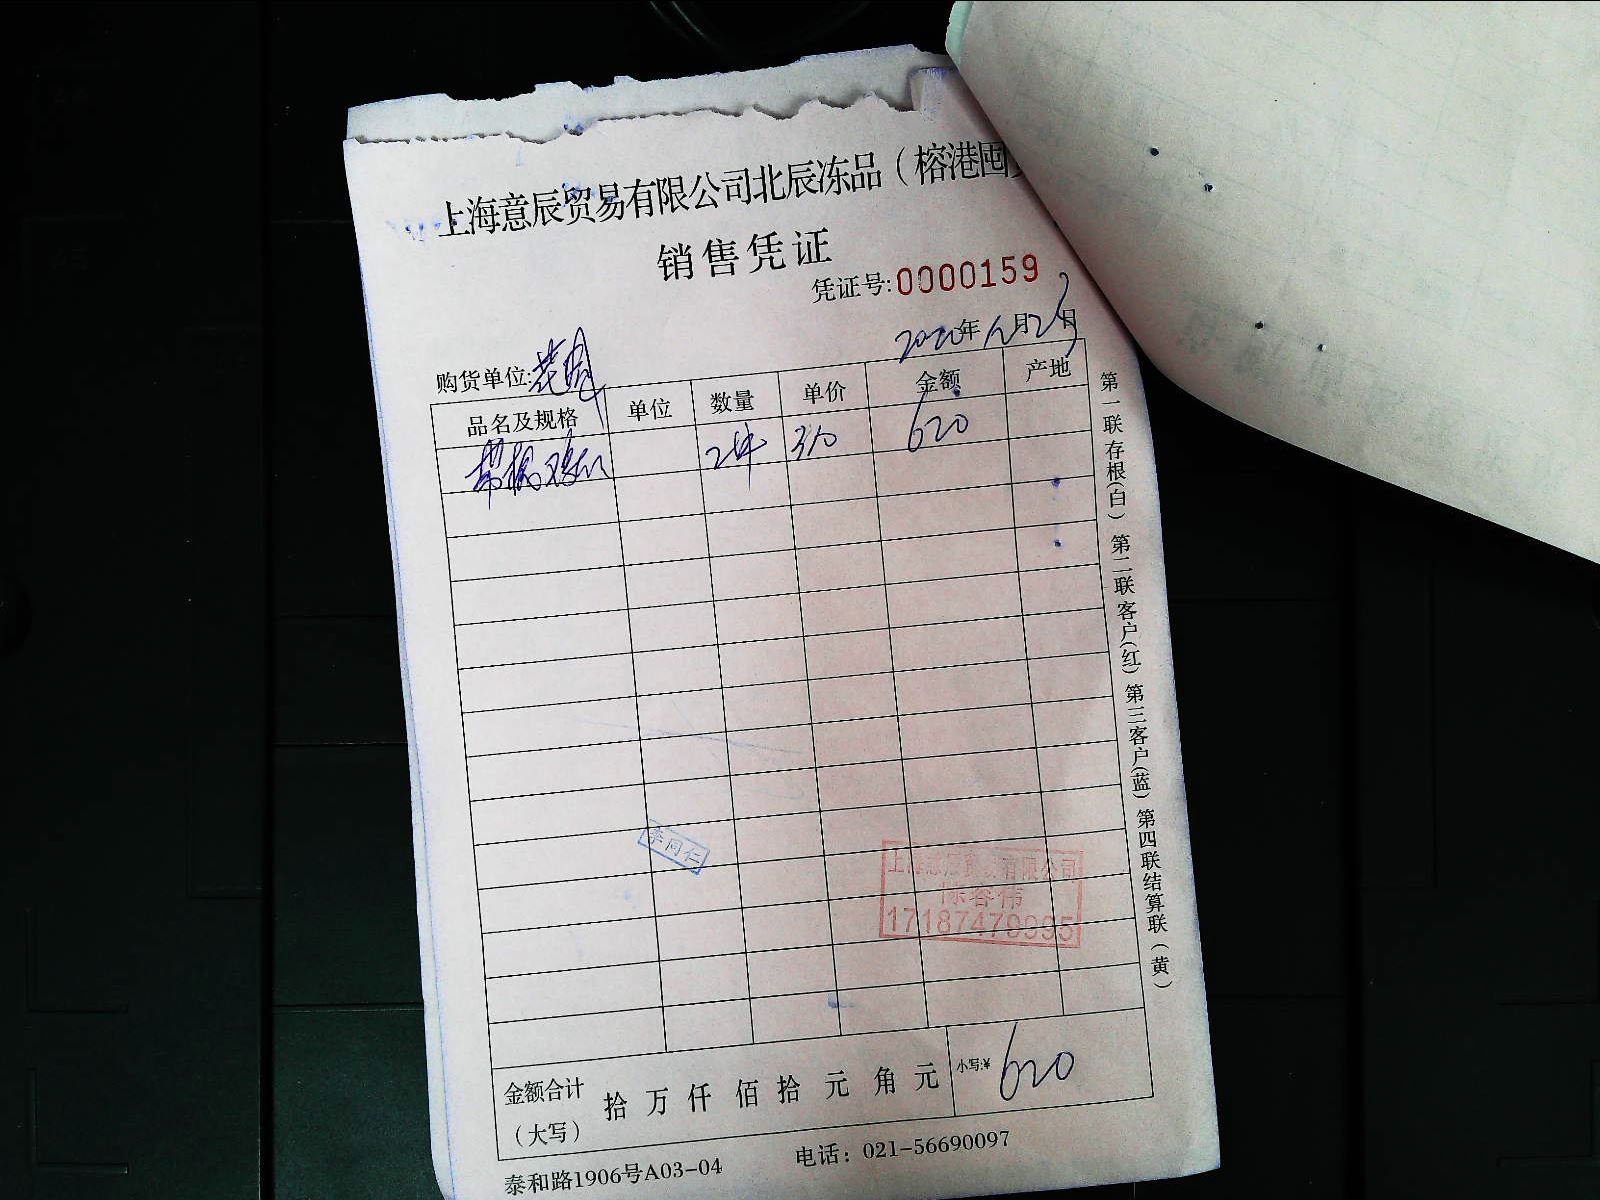 上海意辰贸易有限公司北辰冻品（榕港囤
销售凭证
凭证号:0000159
2020年 月2 日
购货单位:
品名及规格 单位 数量 单价 金额 产地
2件 310 620
李同仁
上海意辰贸易有限公司
陈春伟
17187479995
金额合计（大写） 拾 万 仟 佰 拾 元 角 元 小写:¥ 620
泰和路1906号A03-04 电话：021-56690097
第一联存根(白) 第二联客户(红) 第三客户(蓝) 第四联结算联(黄)